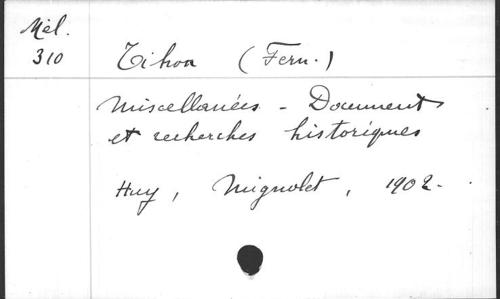 Mél.
310
Tihon (Fern.)
Miscellanées - Documents
et recherches historiques
Huy, Mignolet, 1902.